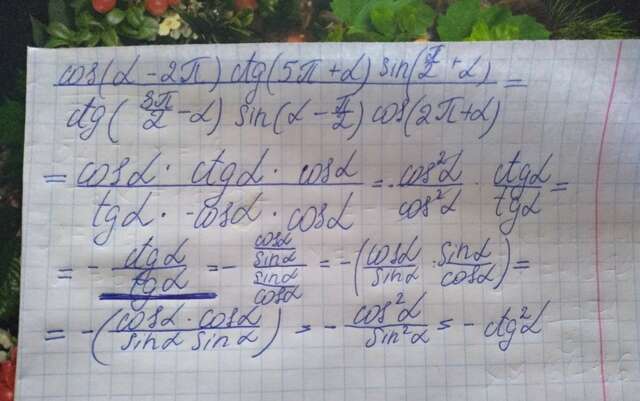 cos(α - 2π) ctg(5π + α) sin(π/2 + α) / ctg(3π/2 - α) sin(α - π/2) cos(2π + α) =
= cosα · ctgα · cosα / tgα · -cosα · cosα = - cos²α / cos²α · ctgα / tgα =
= - ctgα / tgα = - (cosα / sinα) / (sinα / cosα) = -(cosα / sinα : sinα / cosα) =
= -(cosα · cosα / sinα sinα) = - cos²α / sin²α = - ctg²α